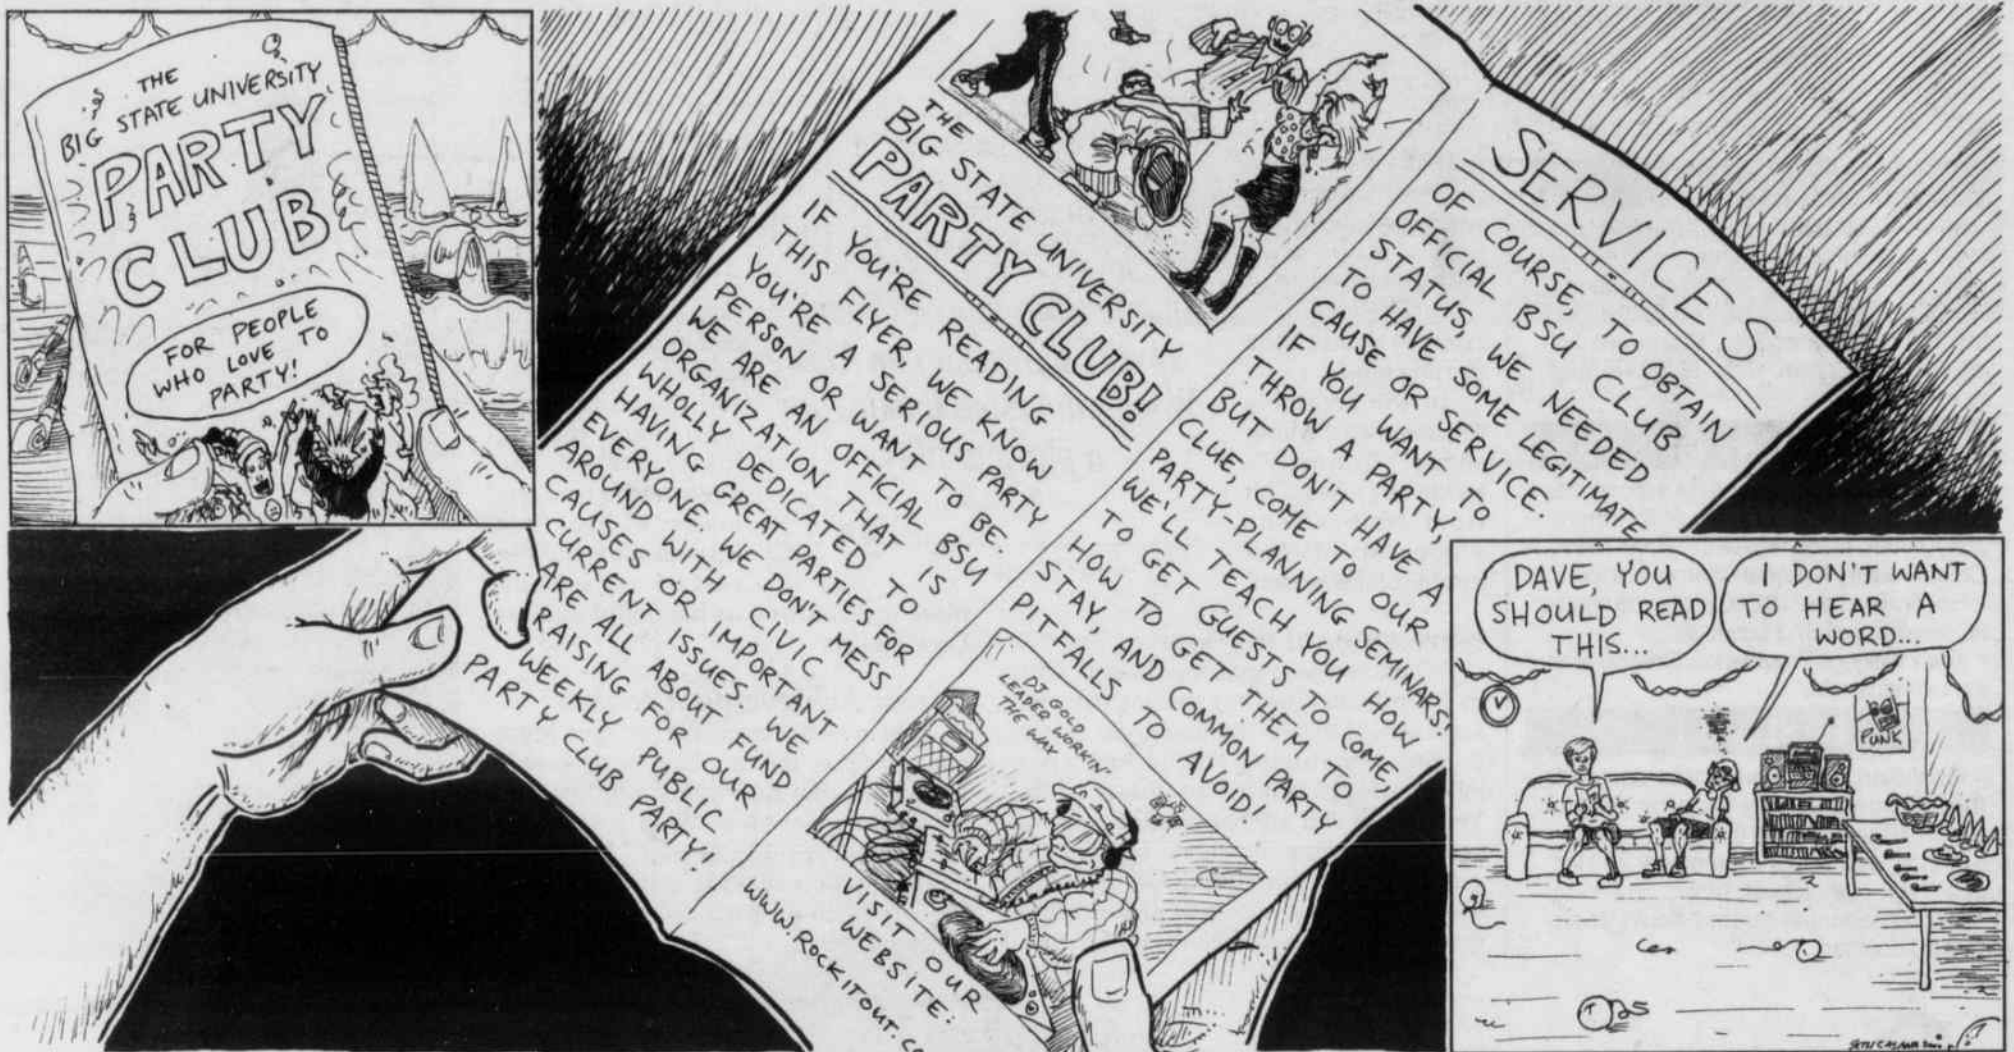 THE
BIG STATE UNIVERSITY
PARTY
CLUB
FOR PEOPLE
WHO LOVE TO
PARTY!
THE
BIG STATE UNIVERSITY
PARTY CLUB!
IF YOU'RE READING
THIS FLYER, WE KNOW
YOU'RE A SERIOUS PARTY
PERSON OR WANT TO BE.
WE ARE AN OFFICIAL BSU
ORGANIZATION THAT IS
WHOLLY DEDICATED TO
HAVING GREAT PARTIES FOR
EVERYONE. WE DON'T MESS
AROUND WITH CIVIC
CAUSES OR IMPORTANT
CURRENT ISSUES. WE
ARE ALL ABOUT FUND
RAISING FOR OUR
WEEKLY PUBLIC
PARTY CLUB PARTY!
SERVICES
OF COURSE, TO OBTAIN
OFFICIAL BSU CLUB
STATUS, WE NEEDED
TO HAVE SOME LEGITIMATE
CAUSE OR SERVICE.
IF YOU WANT TO
THROW A PARTY,
BUT DON'T HAVE A
CLUE, COME TO OUR
PARTY-PLANNING SEMINARS!
WE'LL TEACH YOU HOW
TO GET GUESTS TO COME,
HOW TO GET THEM TO
STAY, AND COMMON PARTY
PITFALLS TO AVOID!
DJ GOLD
LEADER WORKIN'
THE WAY
VISIT OUR
WEBSITE:
WWW.ROCKITOUT.CO
DAVE, YOU
SHOULD READ
THIS...
I DON'T WANT
TO HEAR A
WORD...
PUNK